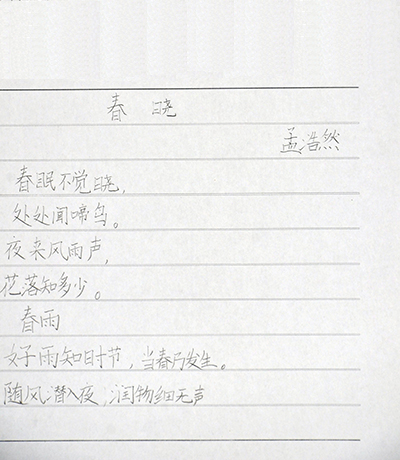 春 晓
孟浩然
春眠不觉晓,
处处闻啼鸟。
夜来风雨声,
花落知多少。
春雨
好雨知时节,当春乃发生。
随风潜入夜,润物细无声